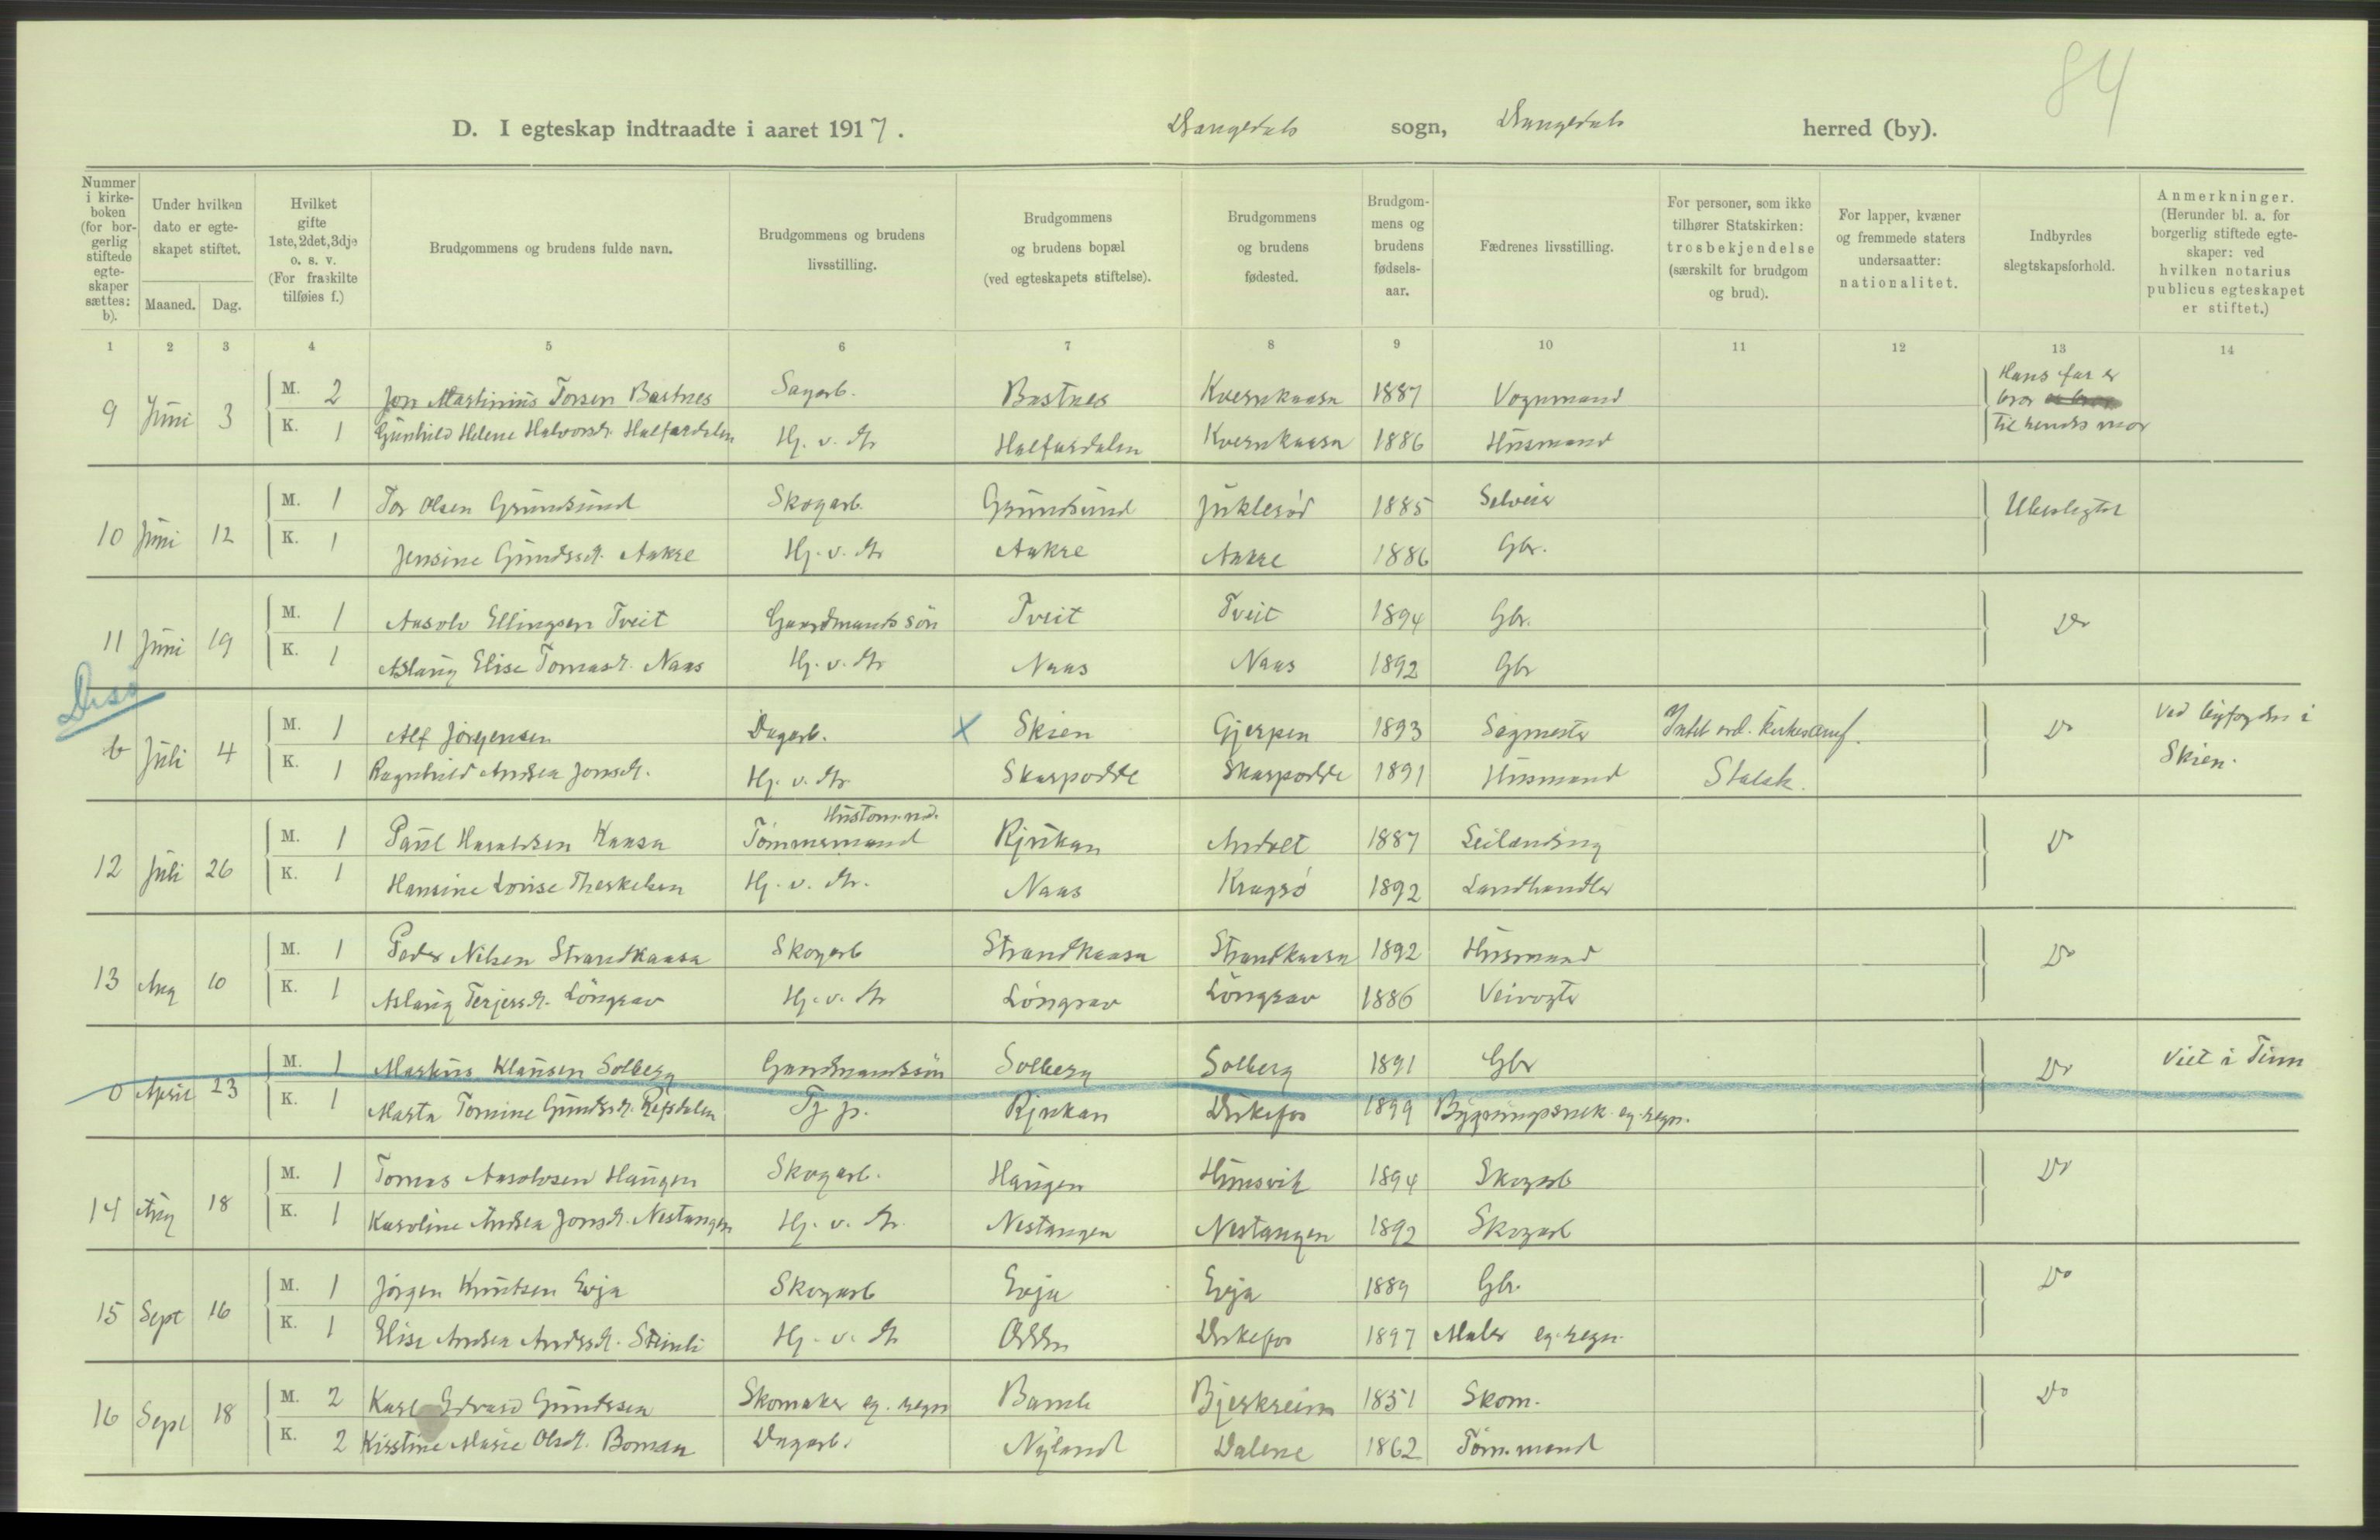 84
D. I egteskap indtraadte i aaret 1917. Drangedals sogn, Drangedals herred (by).
Nummer i kirkeboken (for borgerlig stiftede egteskaper sættes: b).
Under hvilken dato er egteskapet stiftet.
Maaned. Dag.
Hvilket gifte 1ste, 2det, 3dje o. s. v. (For fraskilte tilføies f.)
Brudgommens og brudens fulde navn.
Brudgommens og brudens livsstilling.
Brudgommens og brudens bopæl (ved egteskapets stiftelse).
Brudgommens og brudens fødested.
Brudgommens og brudens fødselsaar.
Fædrenes livsstilling.
For personer, som ikke tilhører Statskirken: trosbekjendelse (særskilt for brudgom og brud).
For lapper, kvæner og fremmede staters undersaatter: nationalitet.
Indbyrdes slegtskapsforhold.
Anmerkninger. (Herunder bl. a. for borgerlig stiftede egteskaper: ved hvilken notarius publicus egteskapet er stiftet.)
1 2 3 4 5 6 7 8 9 10 11 12 13 14
9 Juni 3 M. 2 Jon Martinius Torsen Bostnes Sagarb. Bostnes Kvernkaasa 1887 Vognmand Hans far er bror
K. 1 Gunhild Helene Halvorsd. Halfardalen Hj. v. Do Halfardalen Kvernkaasa 1886 Husmand til hendes mor
10 Juni 12 M. 1 Tor Olsen Grundsund Skogarb. Grundsund Juklerød 1885 Selveier Ubeslegtet
K. 1 Jensine Gundersd. Aakre Hj. v. Do Aakre Aakre 1886 Gbr.
11 Juni 19 M. 1 Aasolv Ellingsen Tveit Gaardmandssøn Tveit Tveit 1894 Gbr. Do
K. 1 Aslaug Elise Tomasd. Naas Hj. v. Do Naas Naas 1892 Gbr
b Juli 4 M. 1 Alf Jørgensen Dagarb. X Skien Gjerpen 1893 Sagmester Do Ved byfogden i
K. 1 Ragnhild Andrea Jonsd. Hj. v. Do Skarpodde Skarpodde 1891 Husmand Statsk. Skien.
12 Juli 26 M. 1 Paul Haraldsen Kaasa Tømmermand Rjukan 1887 Leilænding Do
K. 1 Hansine Lovise Therkelsen Hj. v. Do. Naas Kragrø 1892 Landhandler
13 Aug 10 M. 1 Peder Nilsen Strandkaasa Skogarb Strandkaasa Strandkaasa 1892 Husmand Do
K. 1 Aslaug Terjersd. Løngrav Hj. v. Do Løngrav Løngrav 1886 Veivogter
0 April 23 M. 1 Markus Klausen Solberg Gaardmandssøn Solberg Solberg 1891 Gbr Do Viet i Tinn
K. 1 Marta Tomine Gundersd. Refsdalen Tj. p. Rjukan 1899 Bygningssnek. eg. regn.
14 Aug 18 M. 1 Tomas Aasolvsen Haugen Skogarb. Haugen Humsvik 1894 Skogarb Do
K. 1 Karoline Andrea Jonsd. Nestangen Hj. v. Do. Nestangen Nestangen 1892 Skogarb
15 Sept 16 M. 1 Jørgen Knutsen Evja Skogarb Evja Evja 1889 Gbr. Do
K. 1 Elise Andrea Andersd. Hj. v. Do 1897 Maler eg. regn.
16 Sept 18 M. 2 Karl Edvard Gundersen Skomaker eg. regn Bamle Bjerkreim 1851 Skom. Do
K. 2 Kirstine Marie Olsd. Boman Dagarb. Nyland Dalene 1862 Tøm.mand